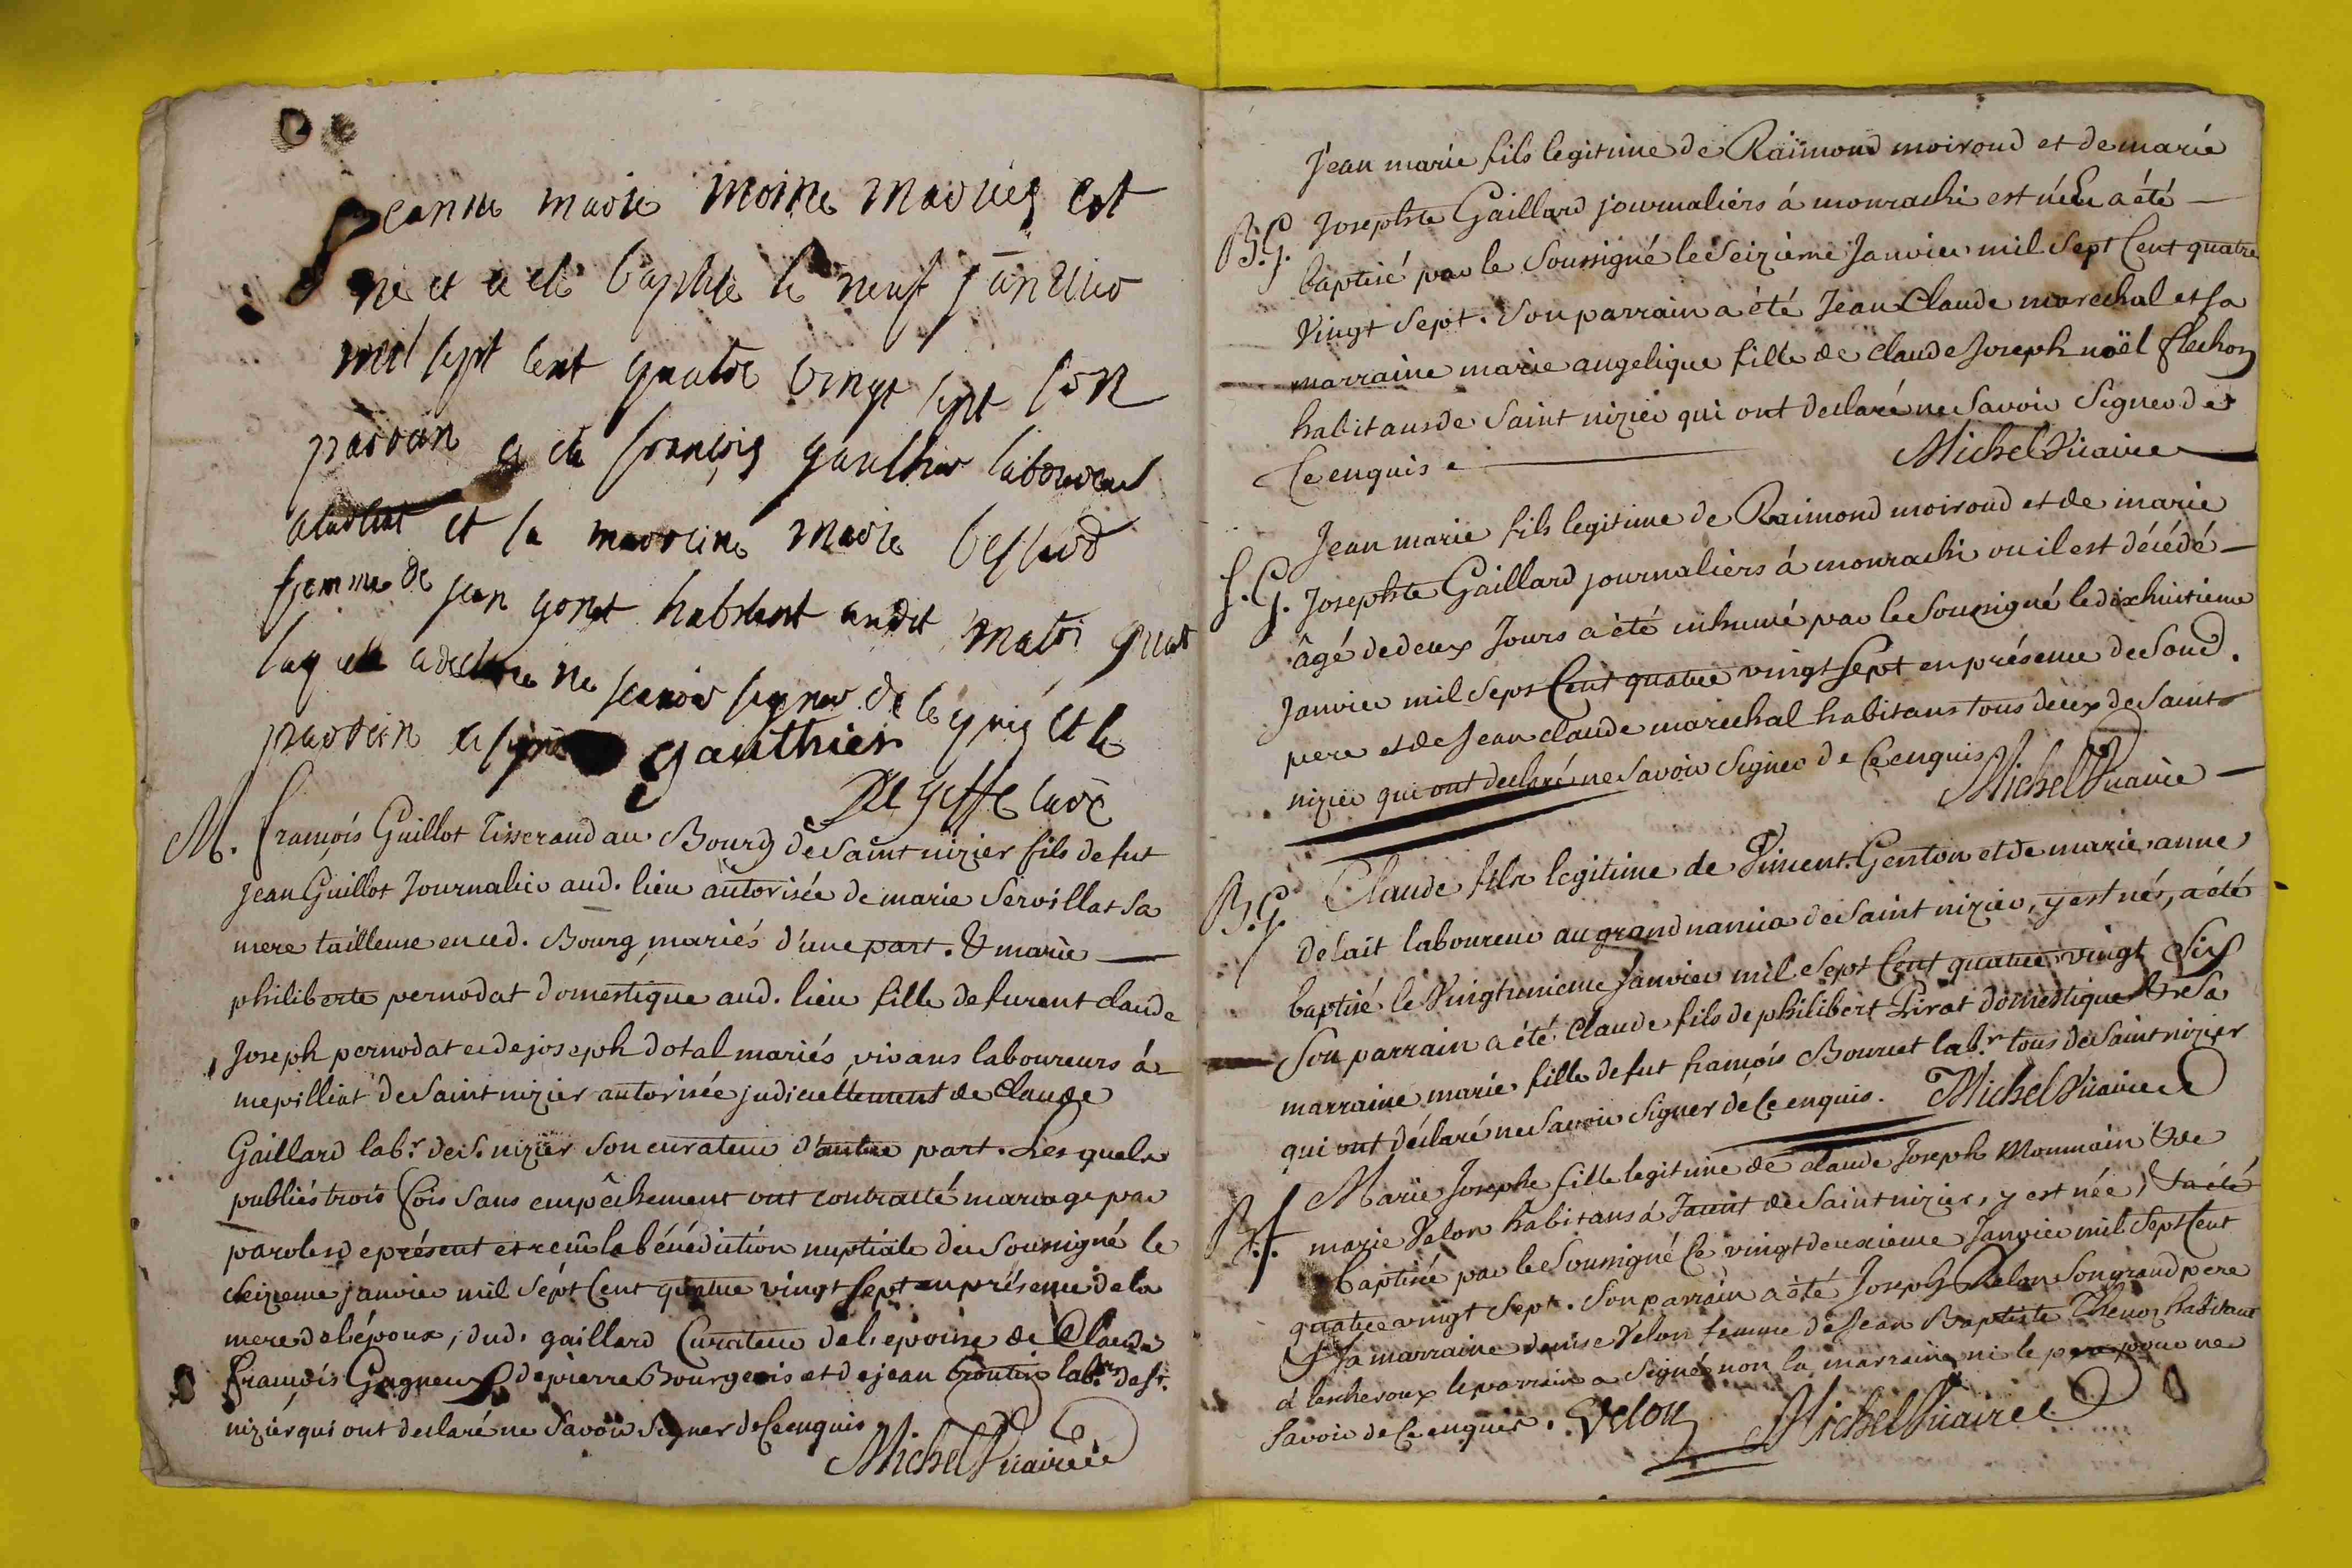 Jeanne marie moine mariés est
né et a eté baptisée le neuf janvier
mil sept cent quatre vingt sept son
parrain a eté françois gauthier laboureur
et sa marraine marie
femme de jean gonet habitant audit
laquelle a declaré ne scavoir signer de ce quis et le
parrain a signé gauthier
curé
M. François Guillot Tisserand au Bourg de Saint nizier fils de fut
jean Guillot Journalier aud. lieu autorisée de marie Servillat sa
mere tailleuse en ced. Bourg, mariés d'une part. & marie
philiberte pernodat domestique aud. lieu fille de furent claude
Joseph pernodat et de joseph dotal mariés, vivans laboureurs á
mepilliat de Saint nizier autorisée judiciellement de Claude
Gaillard lab.r de S. nizier son curateur d'autre part. Lesquels
publiés trois fois sans empêchement ont contracté mariage par
paroles de présent et reçu la bénédiction nuptiale du Soussigné le
Seizieme janvier mil Sépt Cent quatre vingt sept en présence de la
mere de l'époux, dud. gaillard Curateur de l'epouse de Claude
François Gagneur de pierre Bourgeois et de jean lab.rs de st.
nizier qui ont declaré ne Savoir Signer de Ce enquis
Michel Vicaire
Jean marie fils legitime de Raïmond moiroud et de marie
B.G. Josephte Gaillard journaliers á monrachi est né & a été
baptisé par le Soussigné le Seizième Janvier mil Sept Cent quatre
Vingt Sept. Son parrain a été Jean Claude marechal et sa
marraine marie angelique fille de claude Joseph noël flechon
habitans de Saint nizier qui ont declaré ne Savoir Signer de
Ce enquis. Michel Vicaire
Jean marie fils legitime de Raimond moiroud et de marie
S.G. Josephte Gaillard journaliers á monrachi ou il est décédé
âgé de deux Jours a été inhumé par le Soussigné le dixhuitieme
Janvier mil Sept Cent quatre vingt Sept en présence de Soud.
pere et de Jean claude marechal habitans tous deux de Saint
nizier qui ont declaré ne Savoir Signer de Ce enquis
Michel Vicaire
B.G. Claude fils legitime de Vincent Genton et de marie anne
delait laboureur au grand nanica de Saint nizier, y est nés, a été
baptisé le Vingtunieme Janvier mil Sept Cent quatre vingt Sept
Son parrain a été Claude fils de philibert Pirat domestique & Sa
marraine marie fille de fut françois Bourcet lab.r tous de Saint nizier
qui ont déclaré ne Savoir Signer de Ce enquis. Michel Vicaire
Marie Josephe fille legitime de claude Joseph Monmain & de
B.f. marie Velon habitans á Tanit de Saint nizier, y est née, & a été
baptisée par le Soussigné Ce vingtdeuxieme Janvier mil Sept Cent
quatre vingt Sept. Son parrain a été Joseph Velon Son grand pere
& Sa marraine denise Velon femme de Jean Baptiste Thevon habitant
á lescheroux le parrain a Signé non la marraine ni le pere pour ne
Savoir de Ce enquis. Velon Michel Vicaire